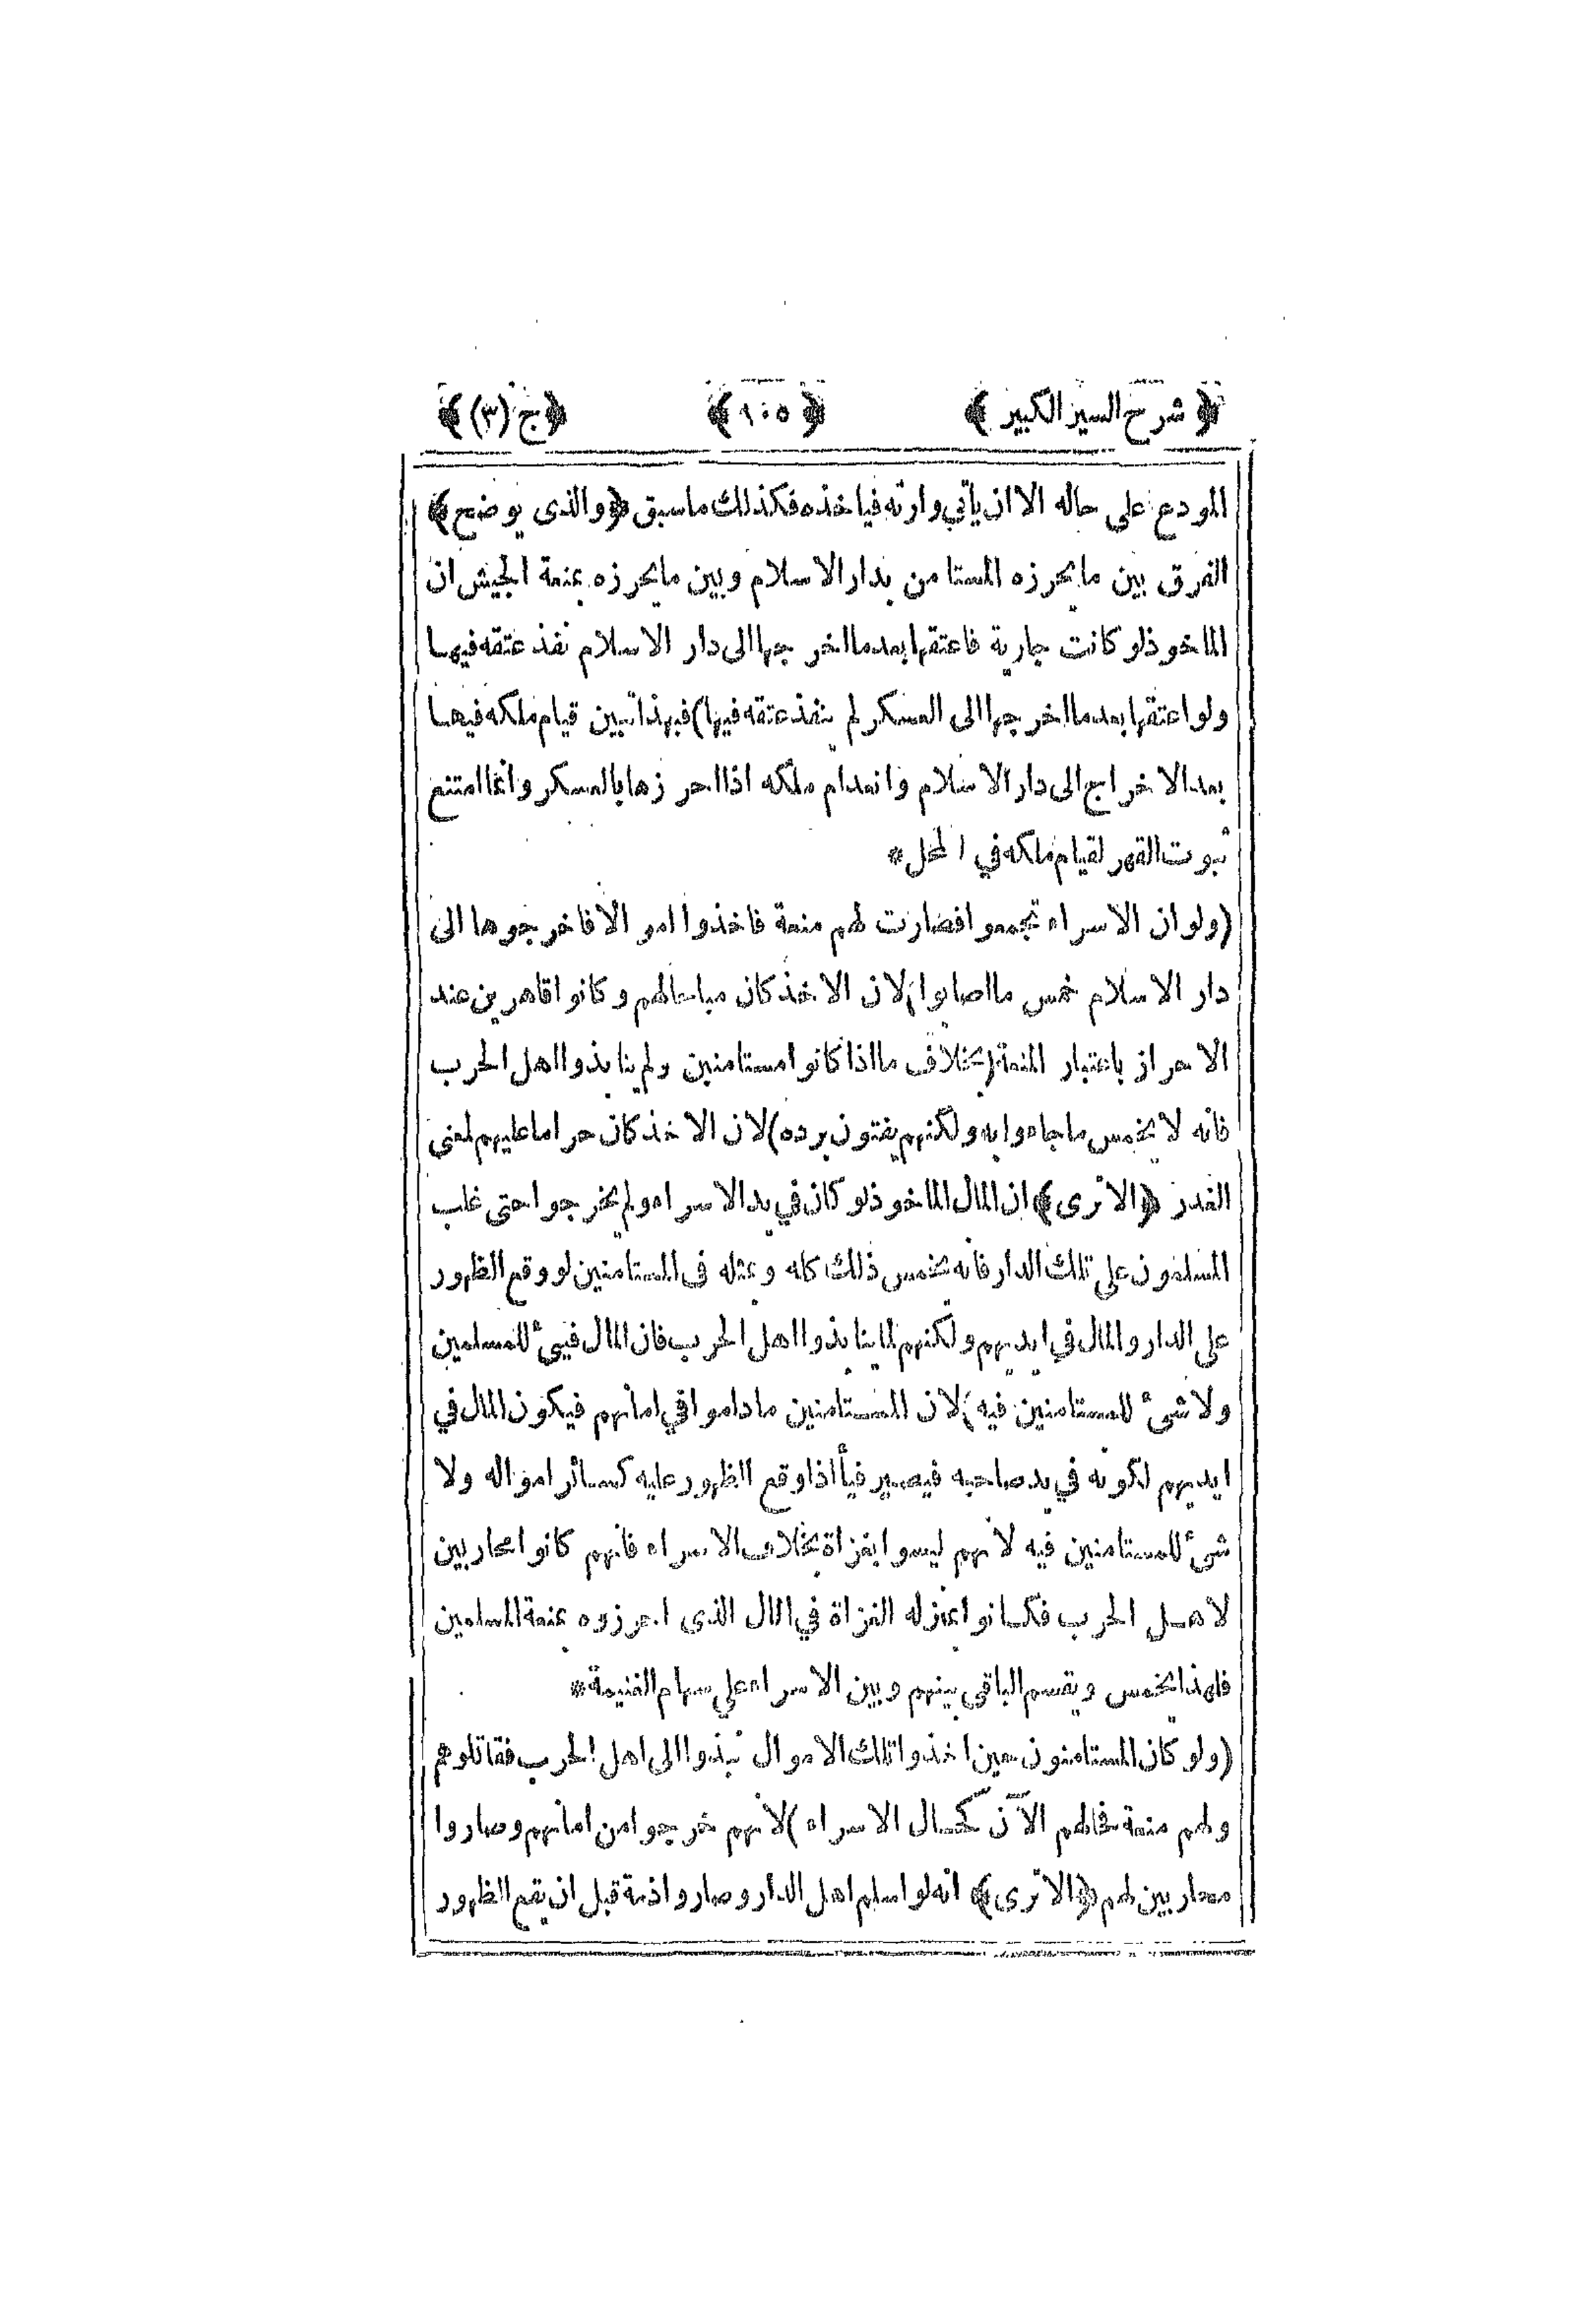 ﴿ شرح السير الكبير ﴾ ﴿ ١٠٥ ﴾ ﴿ ج (٣) ﴾
المودع على حاله الا ان يأتي وارثه فياخذه فكذلك ما سبق ﴿ والذى يوضح ﴾
الفرق بين ما يحرزه المستامن بدار الاسلام وبين ما يحرزه بمنعة الجيش ان
الماخوذ لو كانت جارية فاعتقها بعد ما اخرجها الى دار الاسلام نفذ عتقه فيها
ولو اعتقها بعد ما اخرجها الى العسكر لم ينفذ عتقه فيها) فبهذا تبين قيام ملكه فيها
بعد الاخراج الى دار الاسلام وانعدام ملكه اذا احرزها بالعسكر وانما امتنع
ثبوت القهر لقيام ملكه في المحل *
(ولو ان الاسراء تجمعوا فصارت لهم منعة فاخذوا اموالا فاخرجوها الى
دار الاسلام خمس ما اصابوا) لان الاخذ كان مباحا لهم وكانوا قاهرين عند
الاحراز باعتبار المنعة (بخلاف ما اذا كانوا مستامنين ولم ينابذوا اهل الحرب
فانه لا يخمس ما جاءوا به ولكنهم يفتون برده) لان الاخذ كان حراما عليهم لمعنى
الغدر ﴿ الا ترى ﴾ ان المال الماخوذ لو كان في يد الاسراء ولم يخرجوا حتى غلب
المسلمون على تلك الدار فانه يخمس ذلك كله وبمثله فى المستامنين لو وقع الظهور
على الدار والمال في ايديهم ولكنهم لما ينابذوا اهل الحرب فان المال فييء للمسلمين
ولا شئ للمستامنين فيه) لان المستامنين ما داموا في امانهم فيكون المال في
ايديهم لكونه في يد صاحبه فيصير فيأ اذا وقع الظهور عليه كسائر امواله ولا
شئ للمستامنين فيه لانهم ليسوا بغزاة بخلاف الاسراء فانهم كانوا محاربين
لاهل الحرب فكانوا بمنزله الغزاة في المال الذى احرزوه بمنعة المسلمين
فلهذا يخمس ويقسم الباقى بينهم وبين الاسراء على سهام الغنيمة *
(ولو كان المستامنون حين اخذوا تلك الاموال نبذوا الى اهل الحرب فقاتلوهم
ولهم منعة فحالهم الآن كحال الاسراء) لانهم خرجوا من امانهم وصاروا
محاربين لهم ﴿ الا ترى ﴾ انه لو اسلم اهل الدار وصاروا ذمة قبل ان يقع الظهور